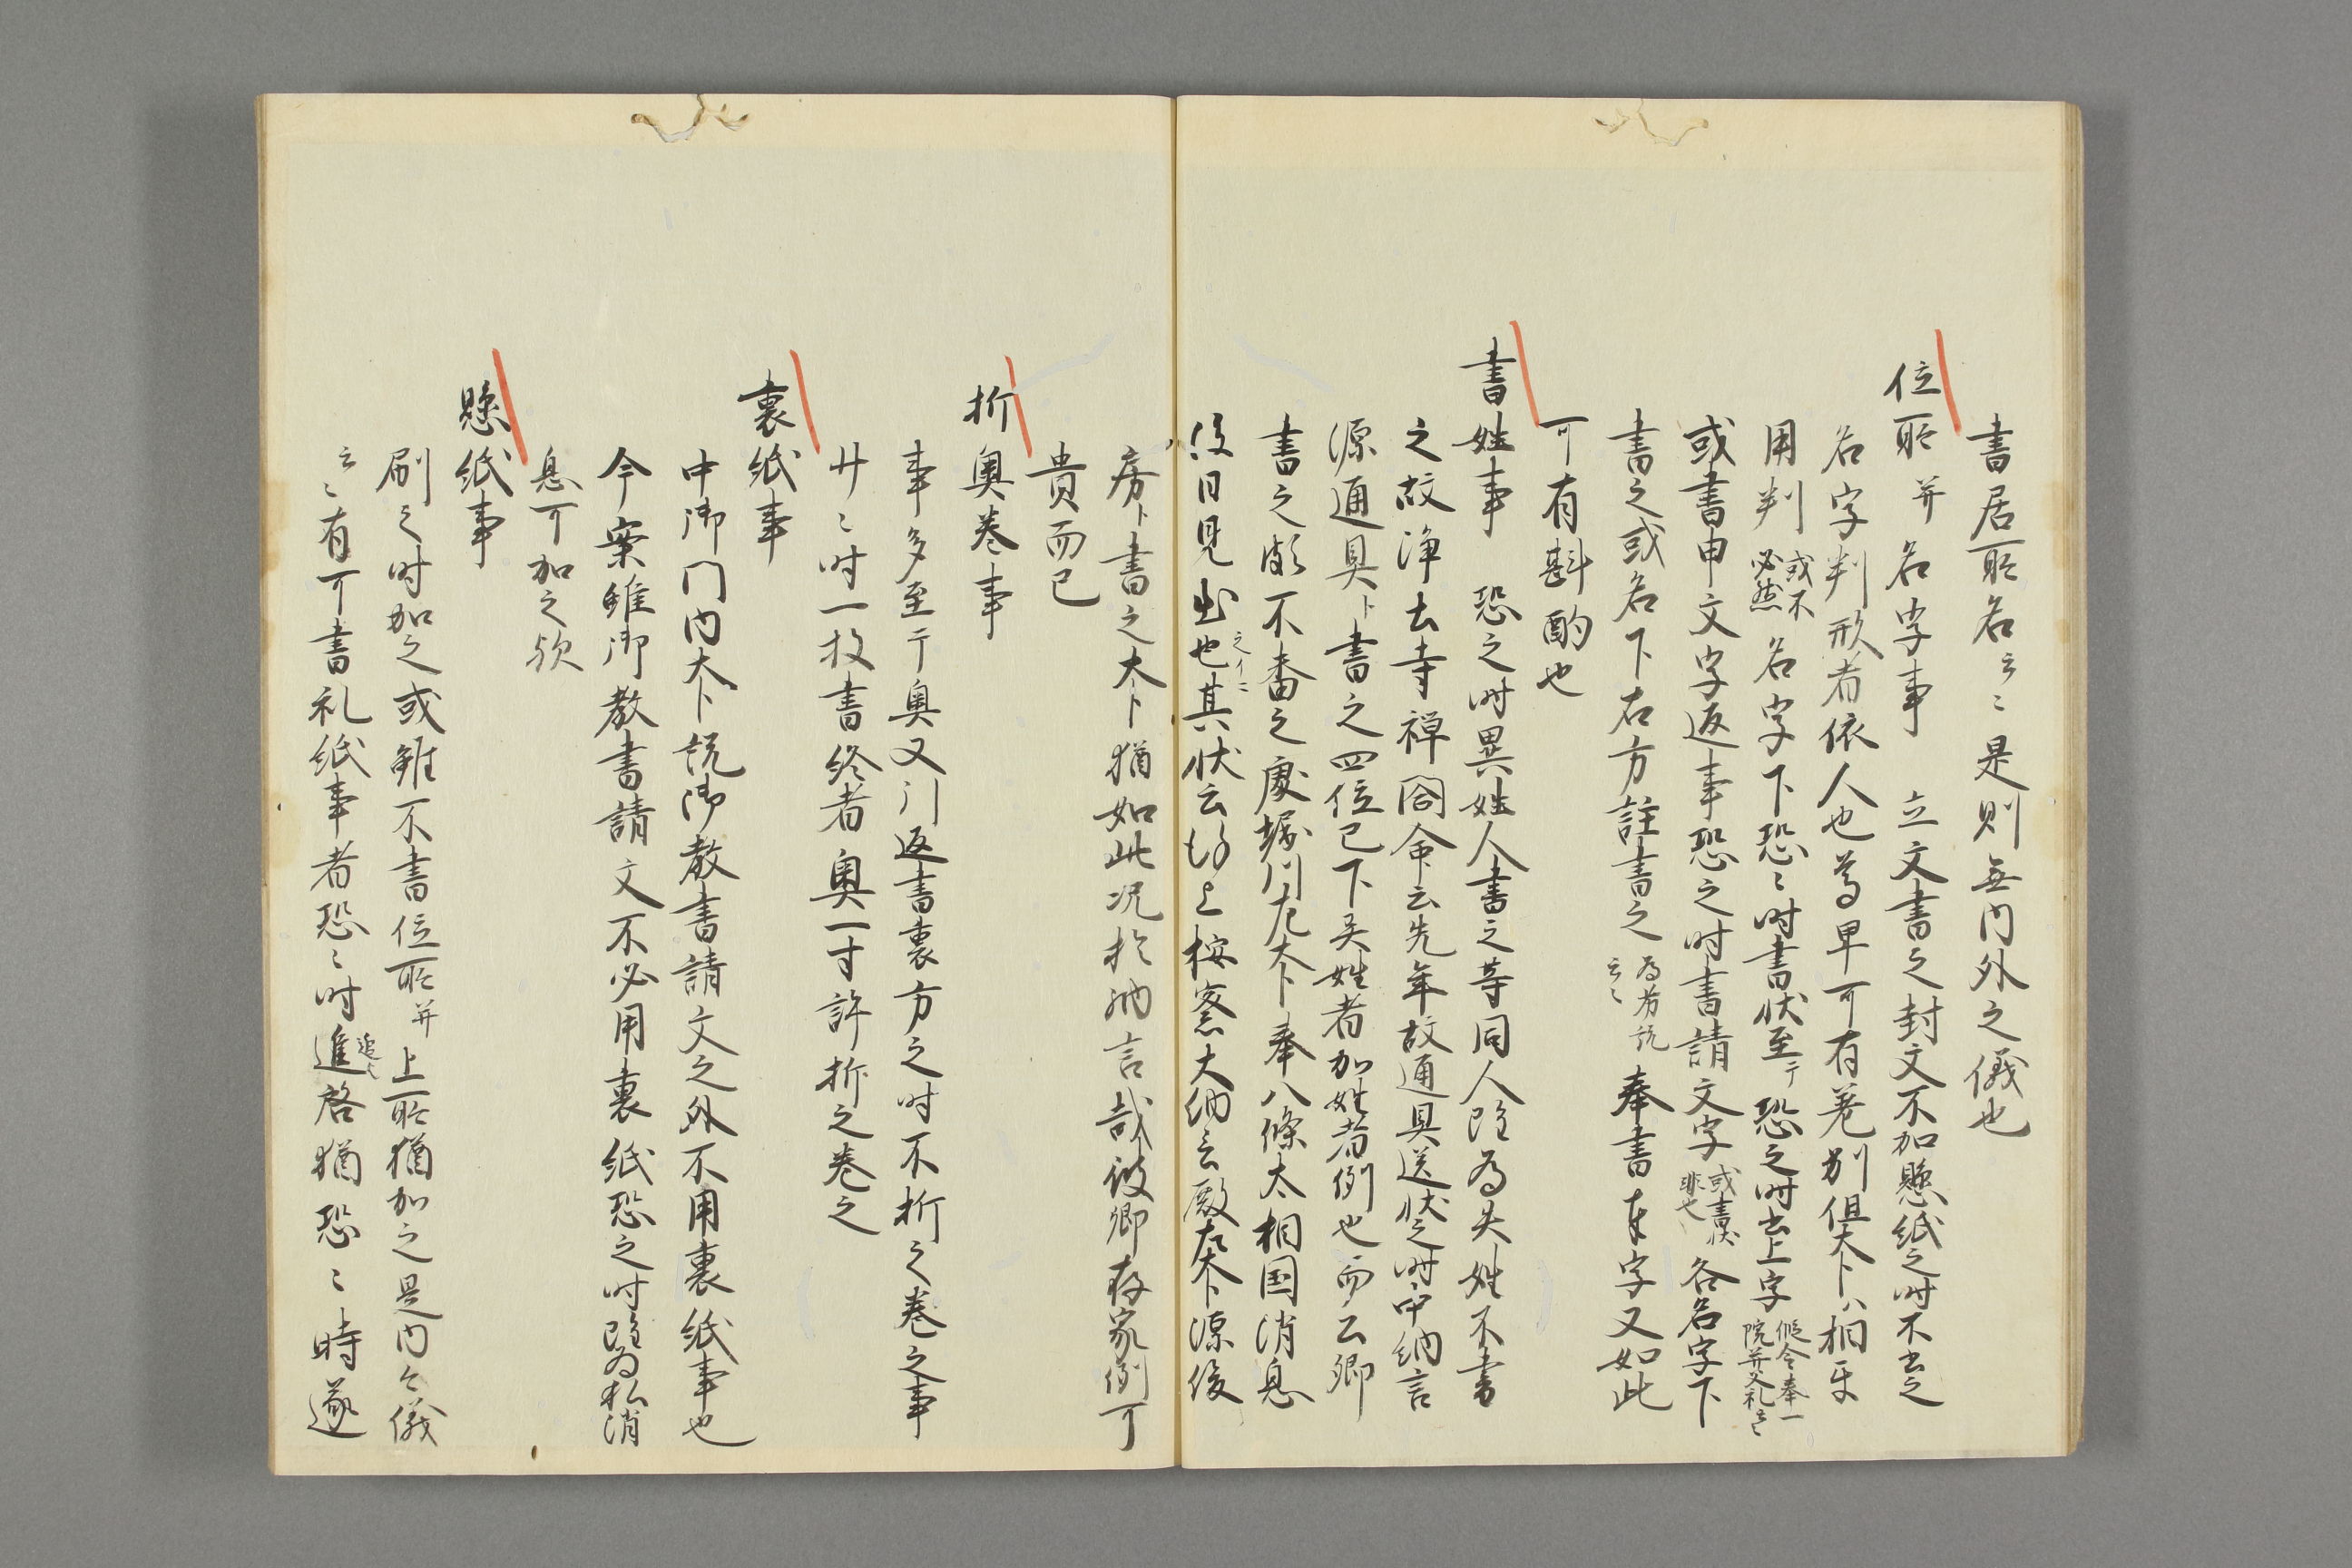 書居所名云々是則無内外之儀也
位所并名字事 立文書之封文不加懸紙之時不書之
名字判形者依人也尊卑可有差別但大卜ハ相牙
用判或不必然名字下恐々時書状至于恐之時書上字仮令奉一院并父礼云々
或書申文字返事恐之時書請文字或書状非也各名字下
書之或名下右方註書之為芳説云々奉書奉字又如此
可有斟酌也
書姓事 恐之時異姓人書之等同人雖為夫姓不書
之故浄土寺禅閤命云先年故通具送状之時中納言
源通具卜書之四位已下異姓者加姓者例也而公卿
書之頗不審之處堀川左大卜奉八條太相国消息
後日見出也之イニ其状云謹上按察大納言殿左大卜源俊
房卜書之大卜猶如此况於納言哉彼卿存家例可
貴而已
折奥巻事
事多至于奥又引返書裏方之時不折之巻之事
廿々時一枚書終者奥一寸許折之巻之
裏紙事
中御門内大卜説御教書請文之外不用裏紙事也
今案雖御教書請文不必用裏紙恐之時雖為私消
息可加之歟
懸紙事
刷之時加之或雖不書位所并上所猶加之是内々儀
云々有可書礼紙事者恐々時進追イ啓猶恐々時遂